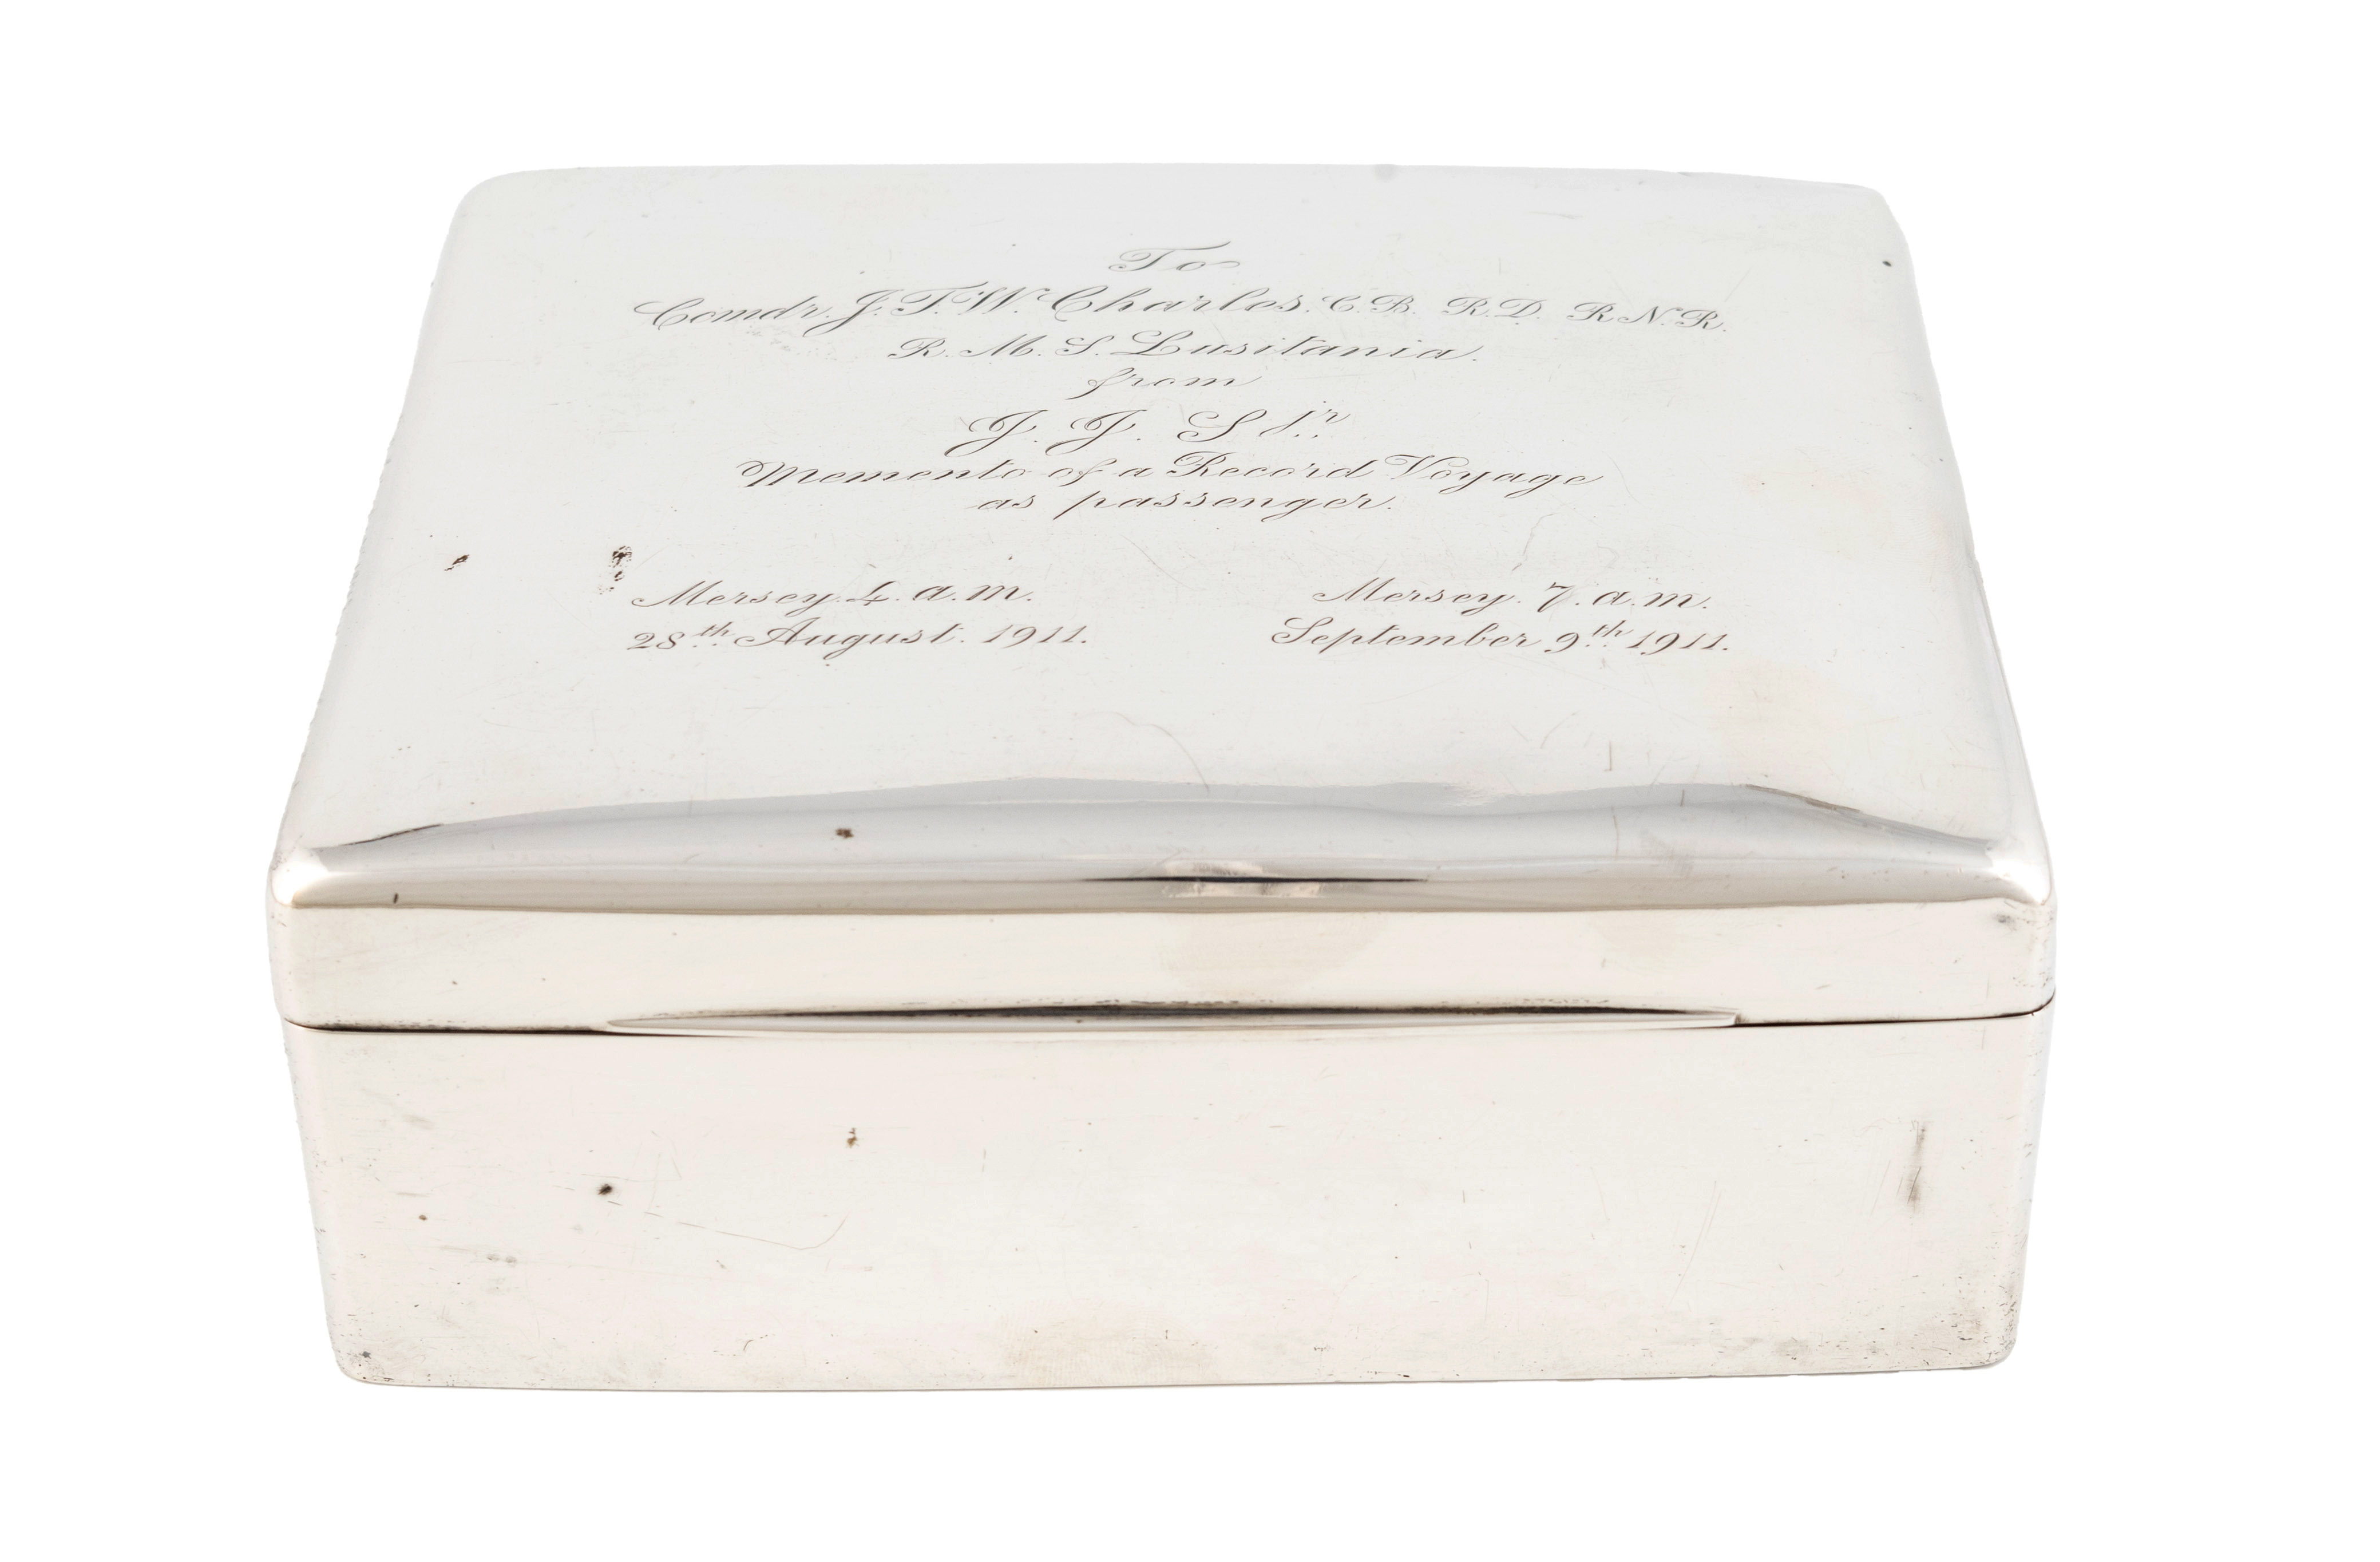 To
Comdr. J. T. W. Charles. C. B. R. D. R. N. R.
R. M. S. Lusitania.
from
J. J. S. jr.
Memento of a Record Voyage
as passenger.
Mersey. 4. a. m. Mersey. 7. a. m.
28th August. 1911. September 9th 1911.